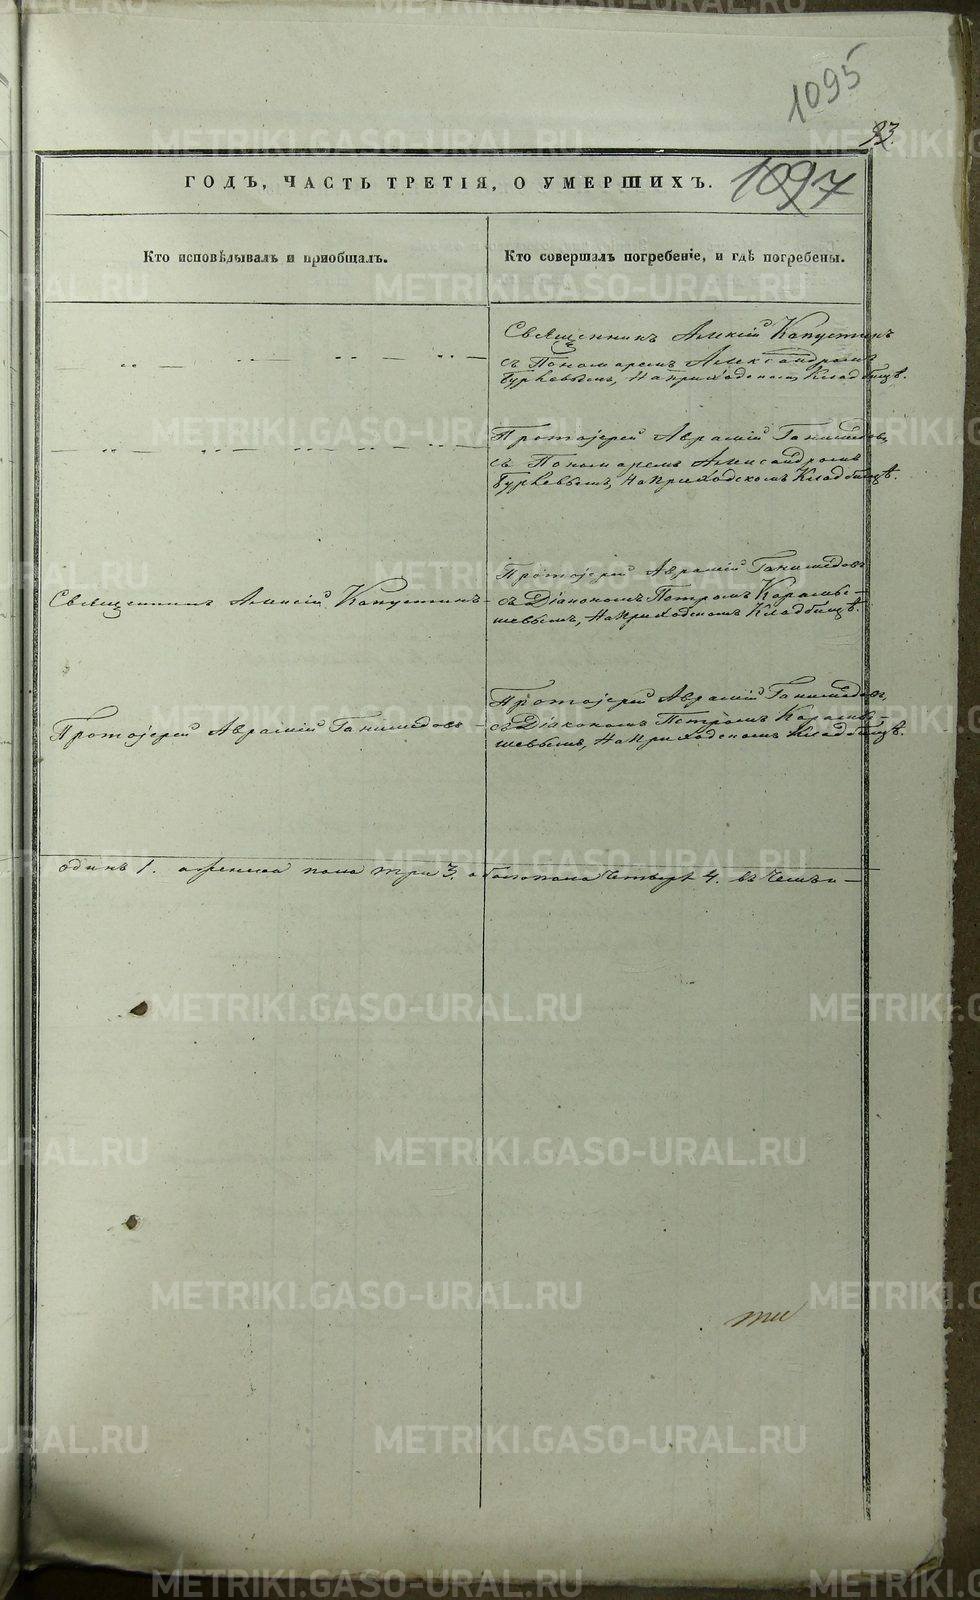 1095
93.
ГОДЪ, ЧАСТЬ ТРЕТІЯ, О УМЕРШИХЪ.
1097
Кто исповѣдывалъ и пріобщалъ.
Кто совершалъ погребеніе, и гдѣ погребены.
Священникъ Алексій Капустинъ
съ Пономаремъ Александромъ
Гурьевымъ, На приходскомъ Кладбищѣ.
Протоіерей Аврамій Ганимедовъ
съ Пономаремъ Александромъ
Гурьевымъ, На приходскомъ Кладбищѣ.
Священникъ Алексій Капустинъ
Протоіерей Аврамій Ганимедовъ
съ Діакономъ Петромъ Карамы-
шевымъ, На приходскомъ Кладбищѣ.
Протоіерей Аврамій Ганимедовъ
Протоіерей Аврамій Ганимедовъ
съ Діакономъ Петромъ Карамы-
шевымъ, На приходскомъ Кладбищѣ.
одинъ 1. а женска пола три 3. обоего пола четыре 4.
METRIKI.GASO-URAL.RU